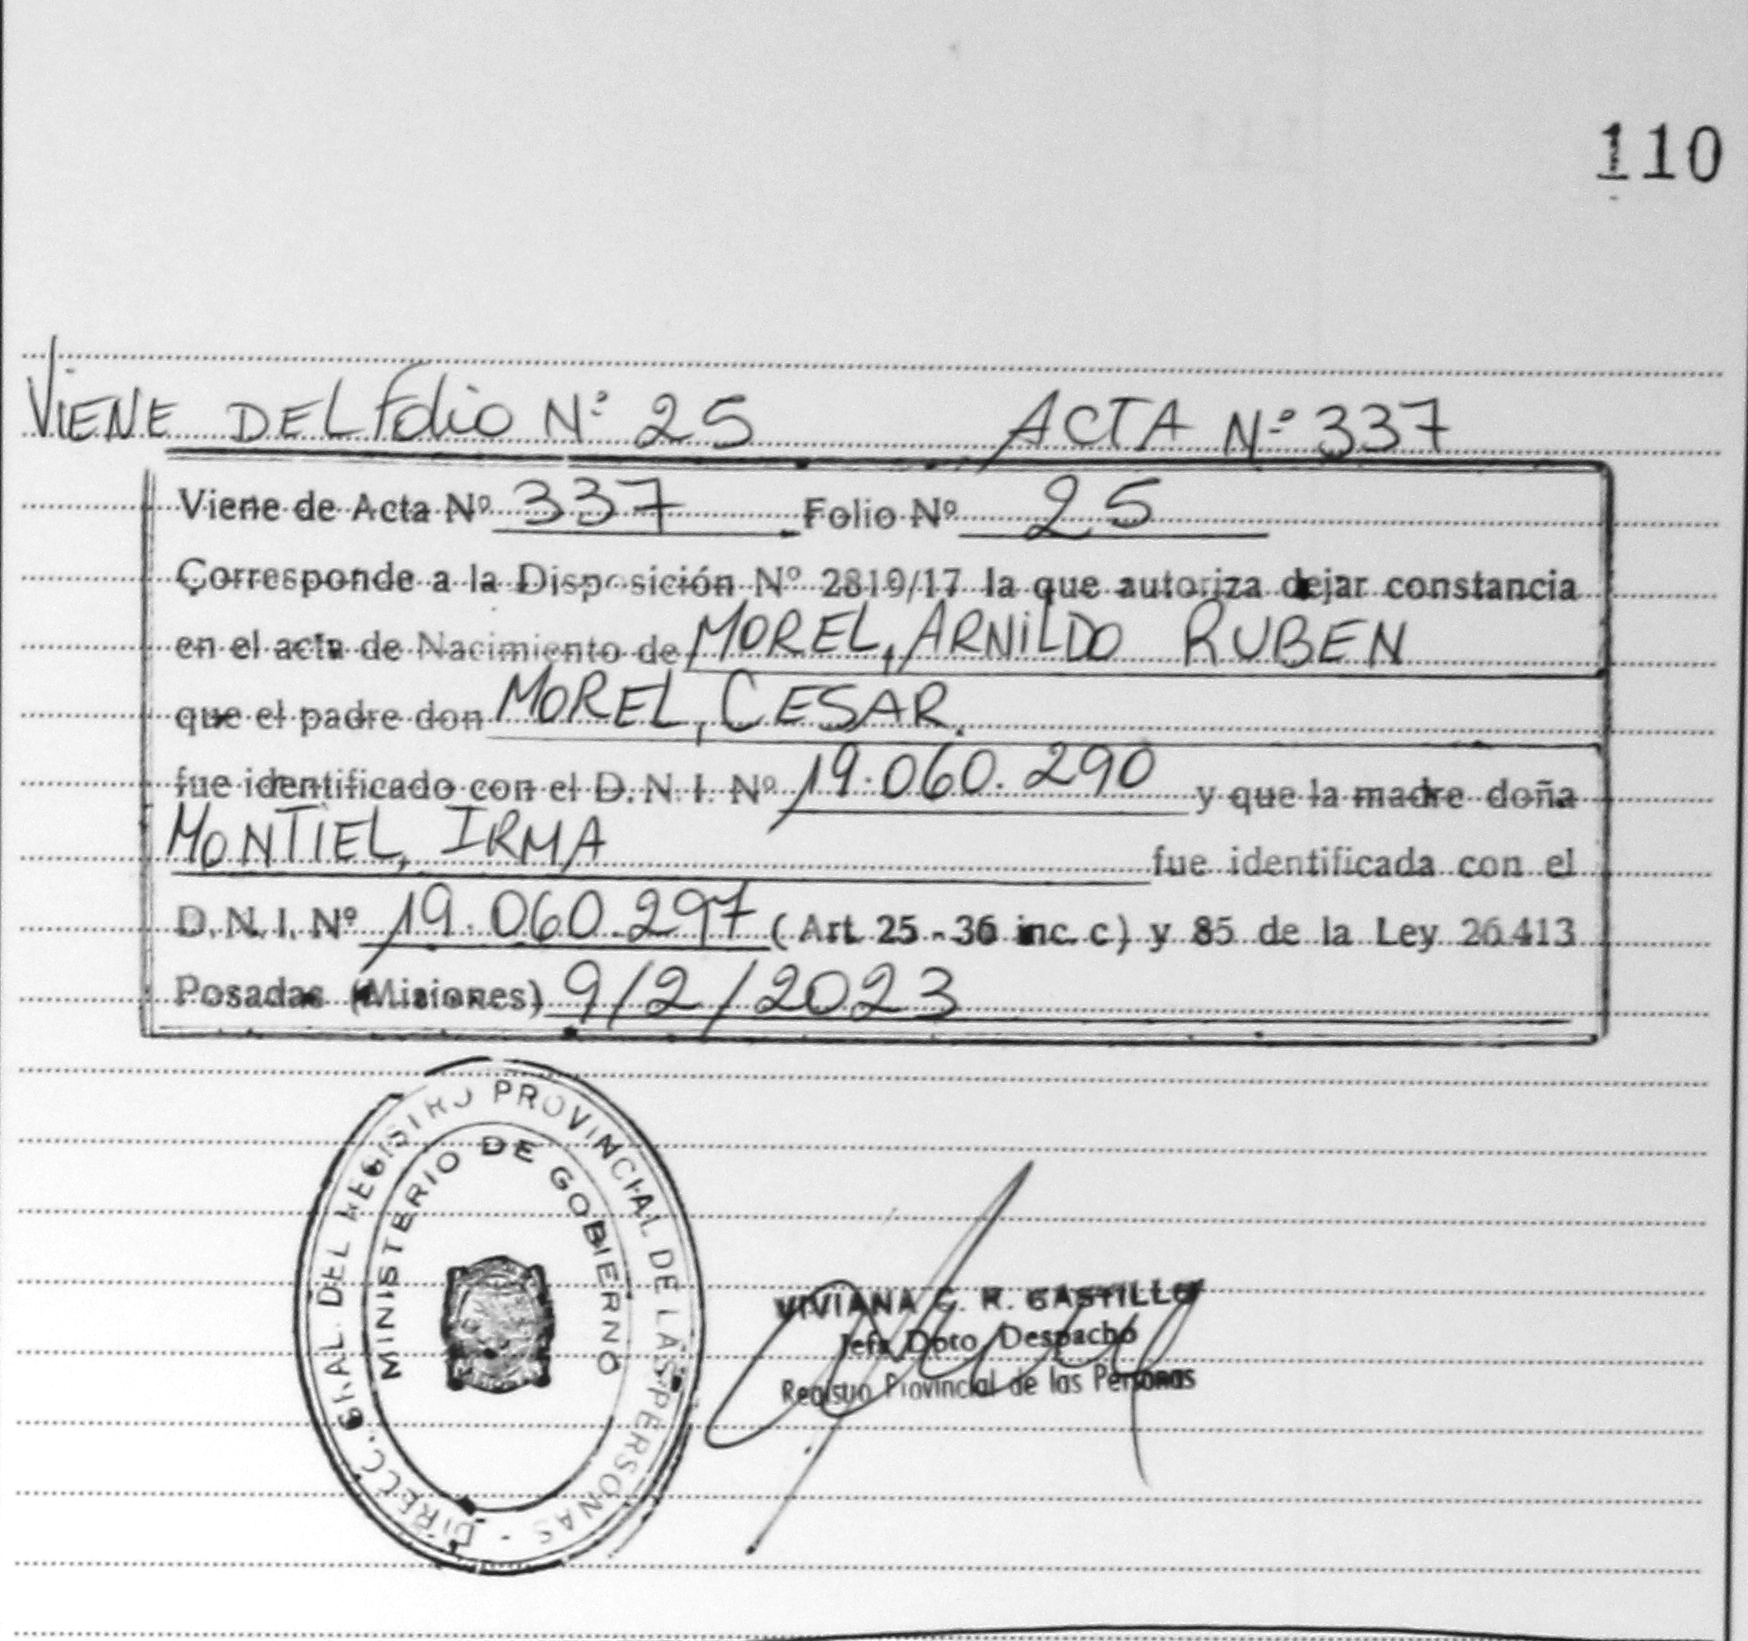 110
VIENE DEL Folio Nº 25 ACTA Nº 337
Viene de Acta Nº 337 Folio Nº 25
Corresponde a la Disposición Nº 2819/17 la que autoriza dejar constancia
en el acta de Nacimiento de MOREL, ARNILDO RUBEN
que el padre don MOREL, CESAR.
fue identificado con el D.N.I. Nº 19.060.290 y que la madre doña
MONTIEL, IRMA fue identificada con el
D.N.I. Nº 19.060.297 (Art. 25 - 36 inc. c) y 85 de la Ley 26.413
Posadas (Misiones) 9/2/2023
DIRECC. GRAL. DEL REGISTRO PROVINCIAL DE LAS PERSONAS -
MINISTERIO DE GOBIERNO
VIVIANA R. CASTILLO
Jefa Dpto. Despacho
Registro Provincial de las Personas